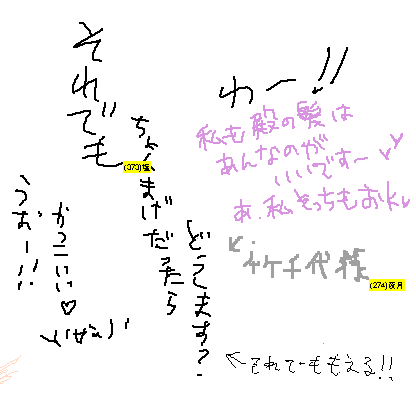 それでも
ちょんまげだったら
どうします?
(273)
うお~!!
かっこいい♡
わー!!
私も殿の髪は
あんなのが
いいです~
あ、私そっちもおk
↙イケチ代様
(274)夜月
←それでももえる!!